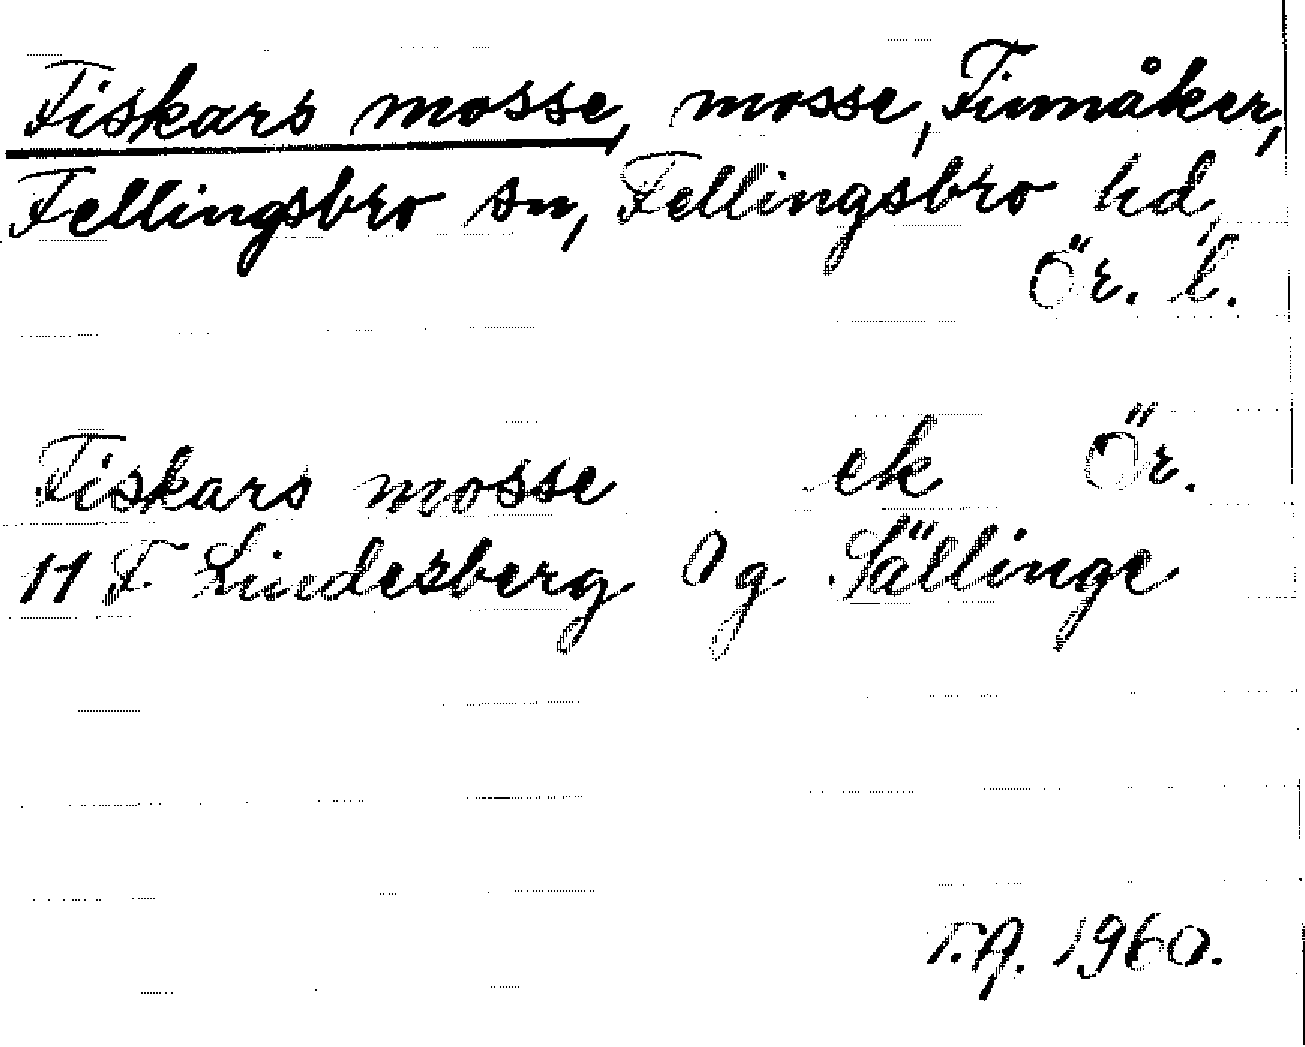 Fiskars mosse, mosse, Finnåker,
Fellingsbro sn, Fellingsbro hd,
Ör. l.
Fiskars mosse ek Ör.
11 F Lindesberg 0 g Sällinge
T.A. 1960.